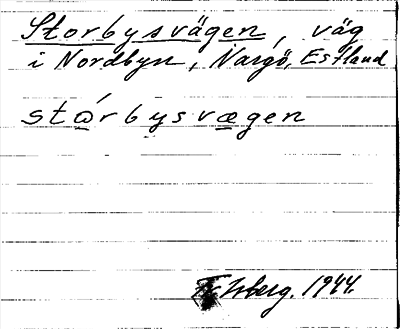 Storbysvägen, väg
i Nordbyn, Nargö, Estland
stώrbysvægen
Isberg. 1944.